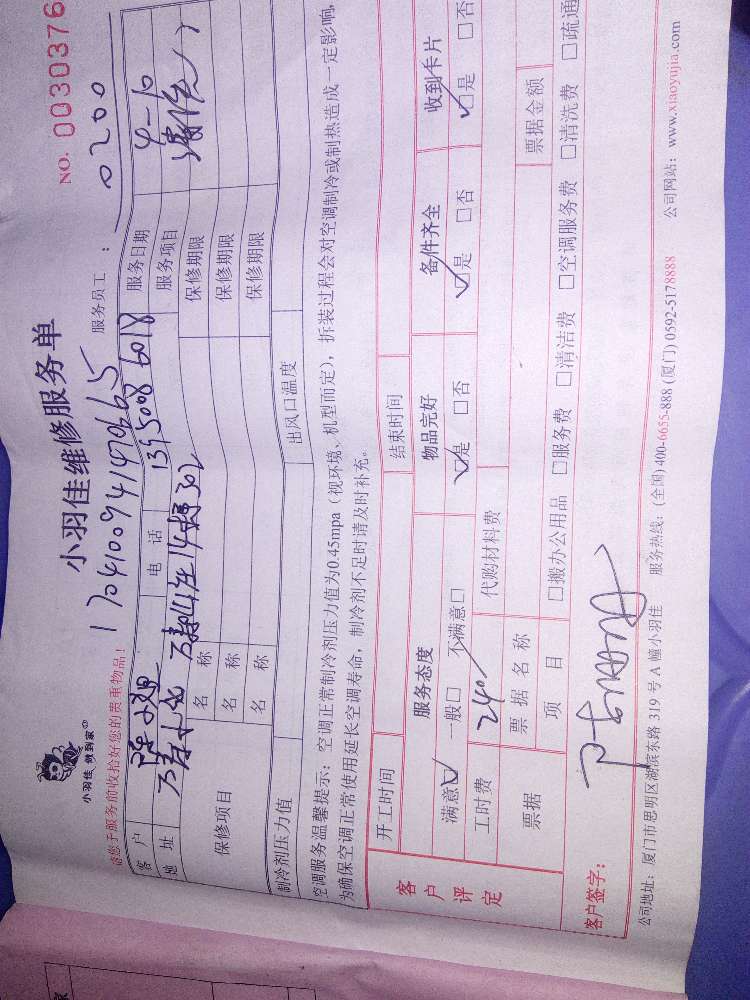 小羽佳 做到家
小羽佳维修服务单
NO. 0030376
请您于服务前收拾好您的贵重物品！
服务员工： 0200
客户 电话 服务日期 4-10
地址 服务项目
保修项目
名称 保修期限
名称 保修期限
名称 保修期限
制冷剂压力值 出风口温度
空调服务温馨提示：空调正常制冷剂压力值为0.45mpa（视环境、机型而定），拆装过程会对空调制冷或制热造成一定影响，
为确保空调正常使用延长空调寿命，制冷剂不足时请及时补充。
客户评定
开工时间 结束时间
服务态度 物品完好 备件齐全 收到卡片
满意☑ 一般□ 不满意□ ☑是 □否 ☑是 □否 ☑是 □否
工时费 240 代购材料费
票据 票据名称 票据金额
项目 □搬办公用品 □服务费 □清洁费 □空调服务费 □清洗费 □疏通
客户签字：
公司地址：厦门市思明区湖滨东路 319 号 A 幢小羽佳 服务热线：(全国) 400-6655-888 (厦门) 0592-5178888 公司网站：www.xiaoyujia.com